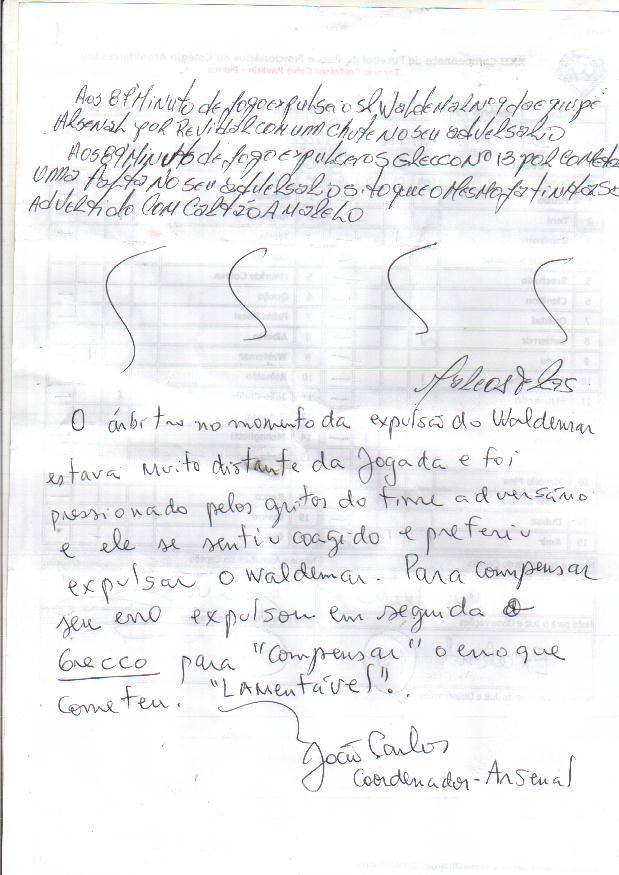 Aos 81º Minuto de jogo expulsei o Sr Waldemar nº 9 da equipe
Arsenal por Revidar com um chute no seu adversario
Aos 89 Minuto de jogo expulcer o S Grecco Nº 13 por comete
uma falta no seu adversario sito que o mesmo ja tinha sido
Advertido com cartão Amarelo
O árbitro no momento da expulsão do Waldemar
estava muito distante da Jogada e foi
pressionado pelos gritos do time adversário
e ele se sentiu coagido e preferiu
expulsar o Waldemar. Para compensar
seu erro expulsou em seguida o
Grecco para "compensar" o erro que
cometeu. "LAmentável".
João Carlos
Coordenador - Arsenal